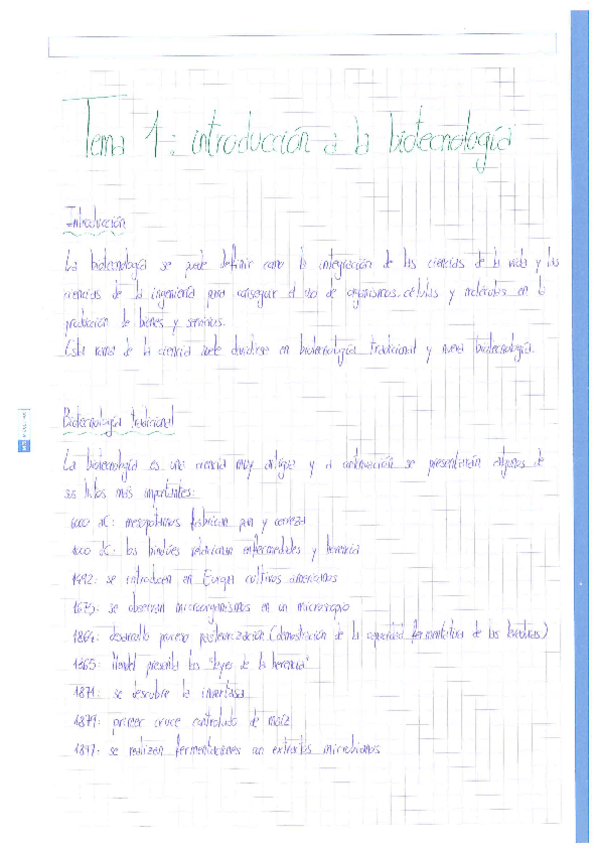 Tema 1: introducción a la biotecnología
Introducción
La biotecnología se puede definir como la integración de las ciencias de la vida y las
ciencias de la ingeniería para conseguir el uso de organismos, células y moléculas en la
producción de bienes y servicios.
Esta rama de la ciencia suele dividirse en biotecnología tradicional y nueva biotecnología.
Biotecnología tradicional
La biotecnología es una ciencia muy antigua y a continuación se presentarán algunos de
sus hitos más importantes:
6000 aC: mesopotámicos fabrican pan y cerveza
1000 aC: los hindúes relacionan enfermedades y herencia
1492: se introducen en Europa cultivos americanos
1675: se observan microorganismos en un microscopio
1864: desarrollo proceso pasteurización (demostración de la capacidad fermentativa de las levaduras)
1865: Mendel presenta las "leyes de la herencia"
1871: se descubre la invertasa
1879: primer cruce controlado de maíz
1897: se realizan fermentaciones con extractos microbianos